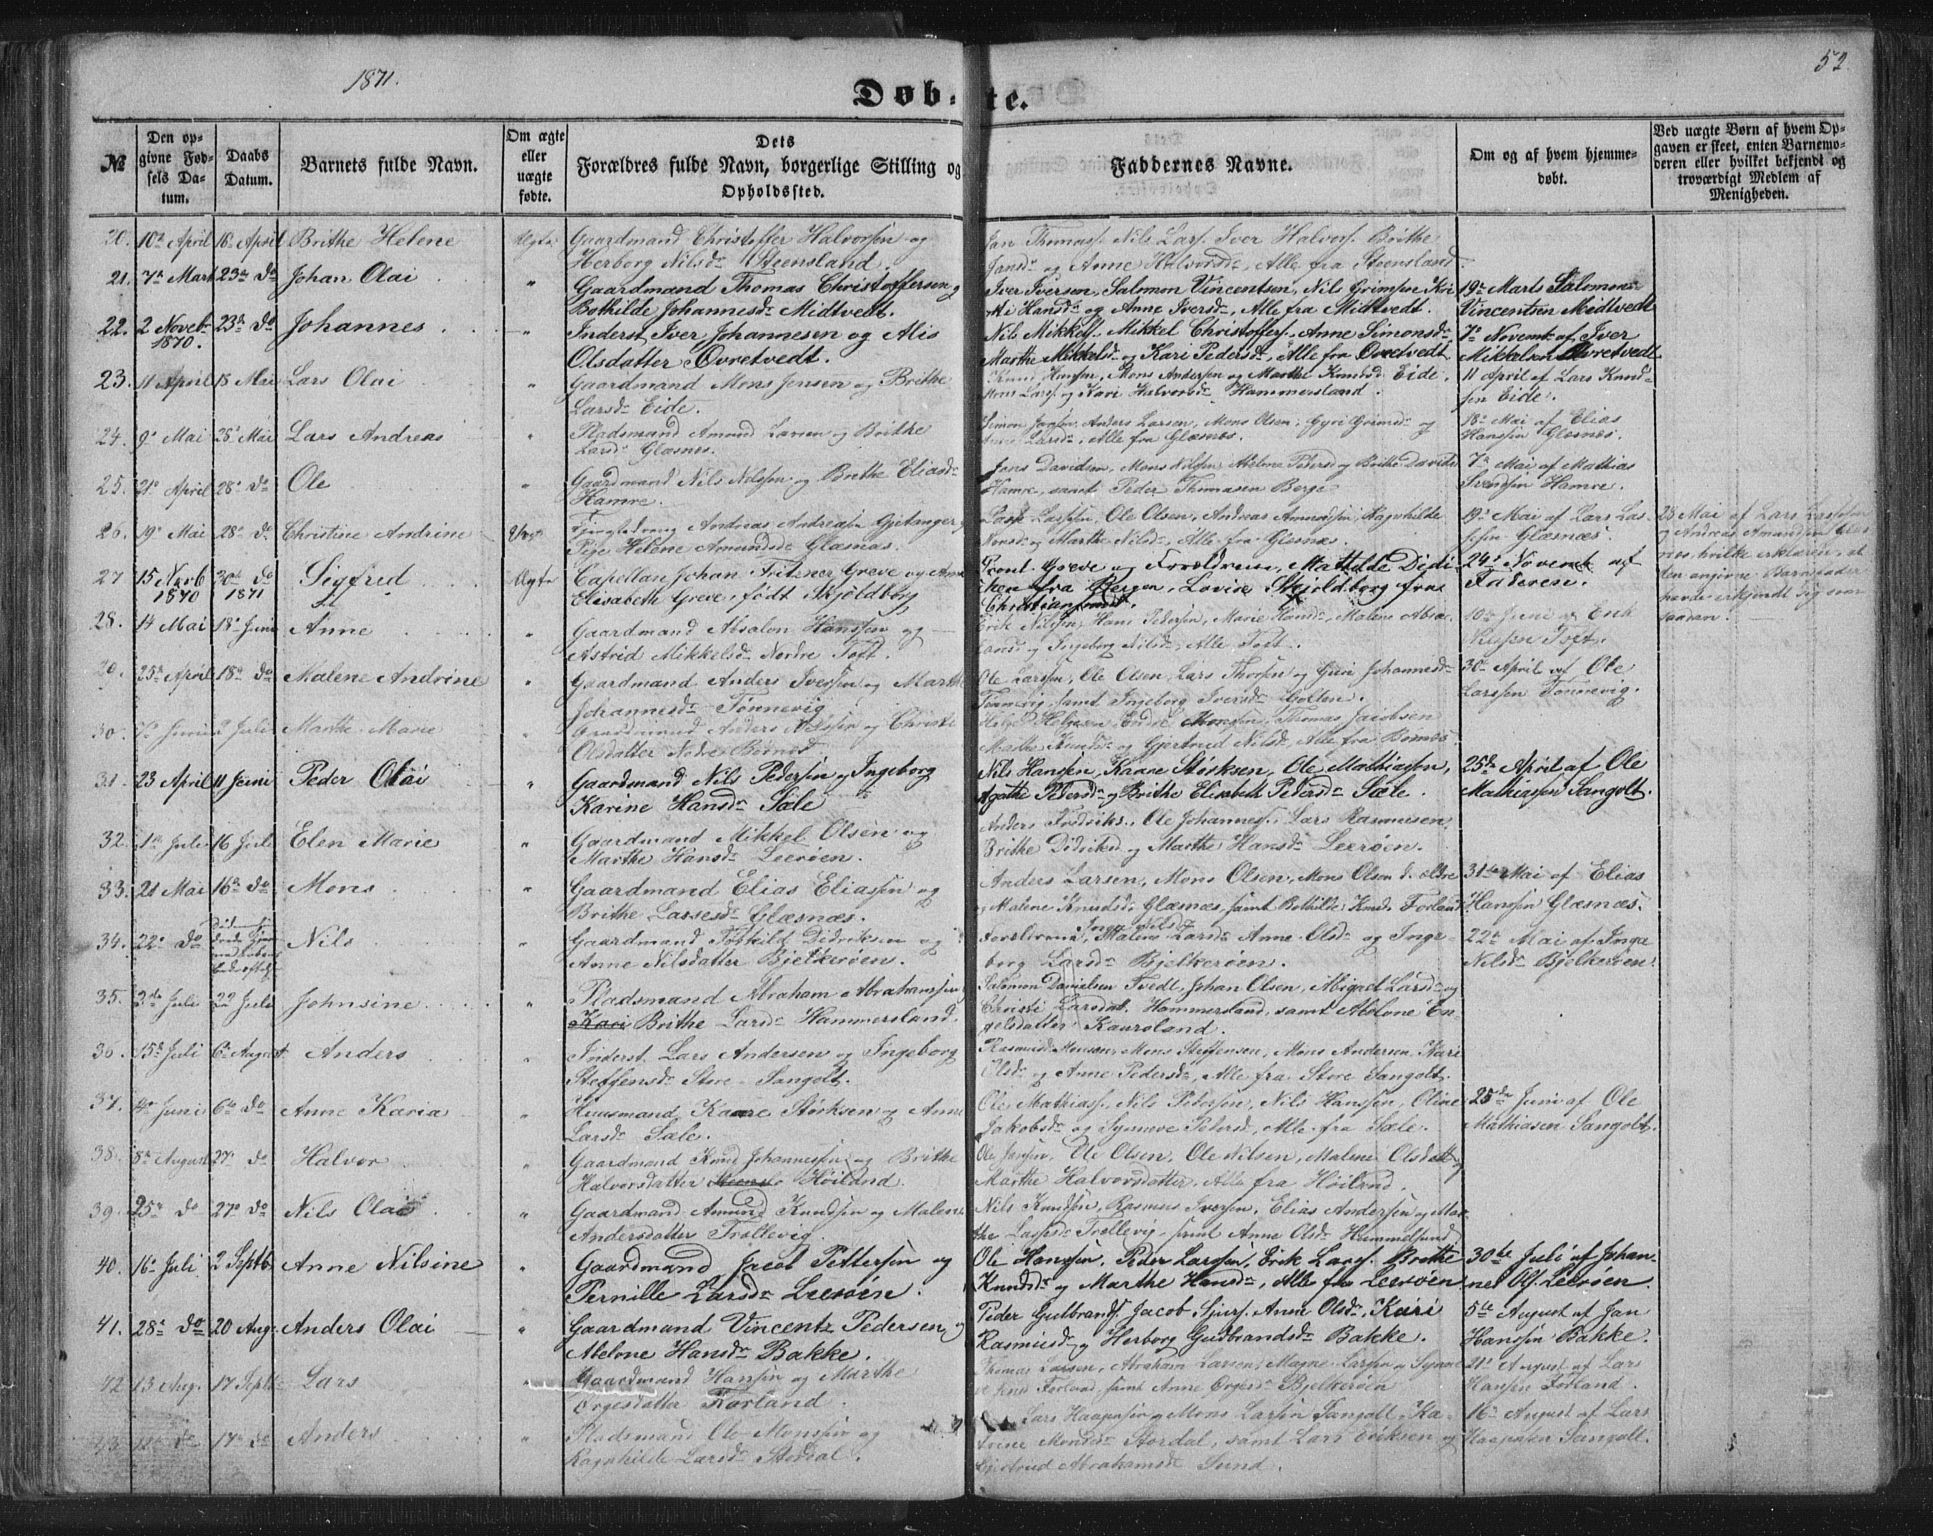 1871.
52
Døb-te.
№
Den opgivne Fødsels Datum.
Daabs Datum.
Barnets fulde Navn.
Om ægte eller uægte fødte.
Dets Forældres fulde Navn, borgerlige Stilling og Opholdssted.
Faddernes Navne.
Om og af hvem hjemmedøbt.
Ved uægte Børn af hvem Opgaven er skeet, enten Barnemoderen eller hvilket bekjendt og troværdigt Medlem af Menigheden.
20. 10de April 16de April Brithe Helene Ægte Gaardmand Christoffer Halvorsen og
Herborg Nilsdr Steensland.
Jan Thomass. Nils Lars. Iver Halvors. Brithe
Jansdr og Anne Halvorsdr, Alle fra Steensland.
21. 7de Mart 23de do Johan Olai " Gaardmand Thomas Christoffersen og
Bothilde Johannesdr Midtvedt.
Iver Iversen, Salomon Vincentsen, Nils Grimsen
Hansdr og Anne Iversdr, Alle fra Midtvedt.
19de Marts Salomon
Vincentsen Midtvedt
22. 2 Novebr 1870. 23de do Johannes " Inderst Iver Johannesen og Alis
Olsdatter Øvretvedt.
Nils Mikkels. Mikkel Christoffers. Anne Simonsdr
Marthe Mikkelsdr og Kari Pedersdr, Alle fra Øvretvedt
7de Novemb. af Iver
Mikkelsen Øvretvedt
23. 11 April 18 Mai Lars Olai " Gaardmand Mons Jensen og Brithe
Larsdr Eide.
Knud Hansen, Mons Andersen og Marthe Knudsd. Eide.
Mons Lars. og Kari Halvorsdr Hammersland.
11 April af Lars Knud-
sen Eide.
24. 9de Mai 28de Mai Lars Andreas " Pladsmand Amund Larsen og Brithe
Larsdr Glæsnæs.
Simon Jansen, Anders Larsen, Mons Olsen, Gyri Grimsdr og
Larsdr, Alle fra Glæsnæs.
18de Mai af Elias
Hanssen Glæsnæs.
25. 21de April 28de do Ole " Gaardmand Nils Nilssen og Brithe Eliasdr
Hamre.
Jens Davidsen, Mons Nilssen, Abelone Peders. og Brithe Davids
Hamre, samt Peder Thomasen Berge
7de Mai af Mathias
Svendsen Hamre.
26. 19de Mai 28de do Christine Andrine Uægte Andreas Andreasen Gjetanger og
Pige Helene Amundsdr Glæsnæs.
Lassen, Ole Olsen, Andreas Amundsen, Ragnhilde
Monsdr og Marthe Nilsdr, Alle fra Glesnæs.
19de Mai af Lars Las-
sen Glæsnæs.
28 Mai af Lars Lassen
og Andreas Amundsen Glæs
næs, hvilke erklærede, at
den angivne Barnefader
havde erkjendt sig som
saadan.
27 15 Novb 1870 30te do 1871 Sigfrid Ægte Capellan Johan Fritzner Greve og Anna
Elisabeth Greve, født Skjoldborg
Front Greve og Forældrene, Mathilde Didi-
ken fra Bergen, Lovise Skjoldborg fra
Christiansund.
24de Novemb af
Faderen.
28. 14 Mai 18de Juni Anne " Gaardmand Absalon Hanssen og
Astrid Mikkelsdr Nordre Toft.
Erik Nilsen, Hans Pedersen, Marie Hansdr, Malene Absa-
lonsdr og Ingeborg Nilsdr, Alle Toft.
10de Juni af Erik
Toft.
29. 25de April 18de do Malene Andrine " Gaardmand Anders Iversen og Marthe
Johannesdr Tønnevig
Ole Larssen, Ole Olsen, Lars Thorsen og Guri Johannesdr
Tønnevig, samt Ingeborg Iversdr Golten.
30de April af Ole
Larssen Tønnevig.
30. Juni 9 Juli Marthe Marie " Gaardmand Anders Nilssen og Christi
Olsdatter Nedre Bornes
Helge Helgesen, Endre Monssen, Thomas Jacobsen
Marthe Knudsdr og Gjertrud Nilsdr, Alle fra Bornes
31. 23 April 11 Juni Peder Olai " Gaardmand Nils Pedersen og Ingeborg
Karine Hansdr Sæle
Nils Hanssen, Kaare Størksen, Ole Mathiassen,
Agathe Petersdr og Brithe Elisabeth Pedersdr Sæle.
25de April af Ole
Mathiassen Sangolt.
32. 1de Juli 16 Juli Elen Marie " Gaardmand Mikkel Olsen og
Marthe Hansdr Leerøen.
Anders Fredriks., Ole Johannes., Lars Rasmusen,
Brithe Didriksd og Marthe Hansdr Leerøen.
33. 21 Mai 16de do Mons " Gaardmand Elias Eliassen og
Brithe Lassesdr Glæsnæs.
Anders Larsen, Mons Olsen, Mons Olsen d. ældre
og Malene Knudsdr Glæsnæs, samt Bothilde Knudsd. Førland
31de Mai af Elias
Hanssen Glæsnæs.
34. 22de do Nils " Gaardmand Torkild Didriksen og
Anne Nilsdatter Bjelkerøen.
Forældrene, Inga Nilsdr Malene Larsdr Anne Olsdr og Inge-
borg Larsdr Bjelkerøen.
22de Mai af Inga
Nilsdr Bjelkerøen.
35. 3de Juli 22 Juli Johnsine " Pladsmand Abraham Abrahamsen og
Kari Brithe Larsdr Hammersland.
Salomon Danielsen Tvedt, Johan Olsen, Abigael Larsdr og
Christi Larsdat. Hammersland, samt Abelone En-
gelsdatter Kaursland.
36. 15de Juli 6te August Anders " Inderst Lars Andersen og Ingeborg
Steffensdr Store Sangolt.
Rasmus Monsen, Mons Steffensen, Mons Andersen, Kari
Olsdr og Anne Pedersdr, Alle fra Store Sangolt.
37. 4de Juni 6te do Anne Karia " Huusmand Kaare Størksen og Anne
Larsdr Sæle.
Ole Mathiass. Nils Pedersen, Nils Hanssen, Oline
Jakobsdr og Synneve Petersd., Alle fra Sæle.
25de Juni af Ole
Mathiasen Sangolt.
38. 8de August 27de do Halvor " Gaardmand Knud Johannessen og Brithe
Halvorsdatter Høiland.
Ole Jansen, Ole Olsen, Ole Nilsen, Malene Olsdatt og
Marthe Halvorsdatter, Alle fra Høiland.
39. 25de do 27de do Nils Olai " Gaardmand Amund Knudsen og Malene
Andersdatter Trællevig.
Nils Knudsen, Rasmus Iversen, Elias Andersen og Mar-
the Lassesdr Trellevig, samt Anne Olsdr Hummelsund
40. 16de Juli 2 Septb. Anne Nilsine " Gaardmand Jacob Pettersen og
Pernille Larsdr Leerøen.
Ole Hanssen, Peder Larssen, Erik Lars. Brithe
Knudsdr og Marthe Hansdr, Alle fra Leerøen
30de Juli af Johan-
nes Ols. Leerøen.
41. 28de do 20 Aug. Anders Olai " Gaardmand Vincentz Pedersen og
Abelone Hansdr Bakke.
Peder Gulbrands. Jacob Sjurs. Anne Olsdr, Kari
Rasmusd og Herborg Gudbrandsdr Bakke.
5te August af Jan
Hanssen Bakke.
42 13 Aug. 17 Septb. Lars " Gaardmand Hanssen og Marthe
Ørgesdatter Førland.
Thomas Larsen, Abraham Larsen, Magne Larssen
Førland, samt Anne Ørgesdr Bjelkerøen
21de August af Lars
Hanssen Førland.
43 do 17de do Anders " Pladsmand Ole Monssen og
Ragnhilde Larsdr Stordal.
Lars Haagensen, Mons Larsen Sangolt, Ka-
trine Monsdr Stordal, samt Lars Eriksen og
Gjertrud Abrahamsdr Sund.
16de August af Lars
Haagensen Sangolt.